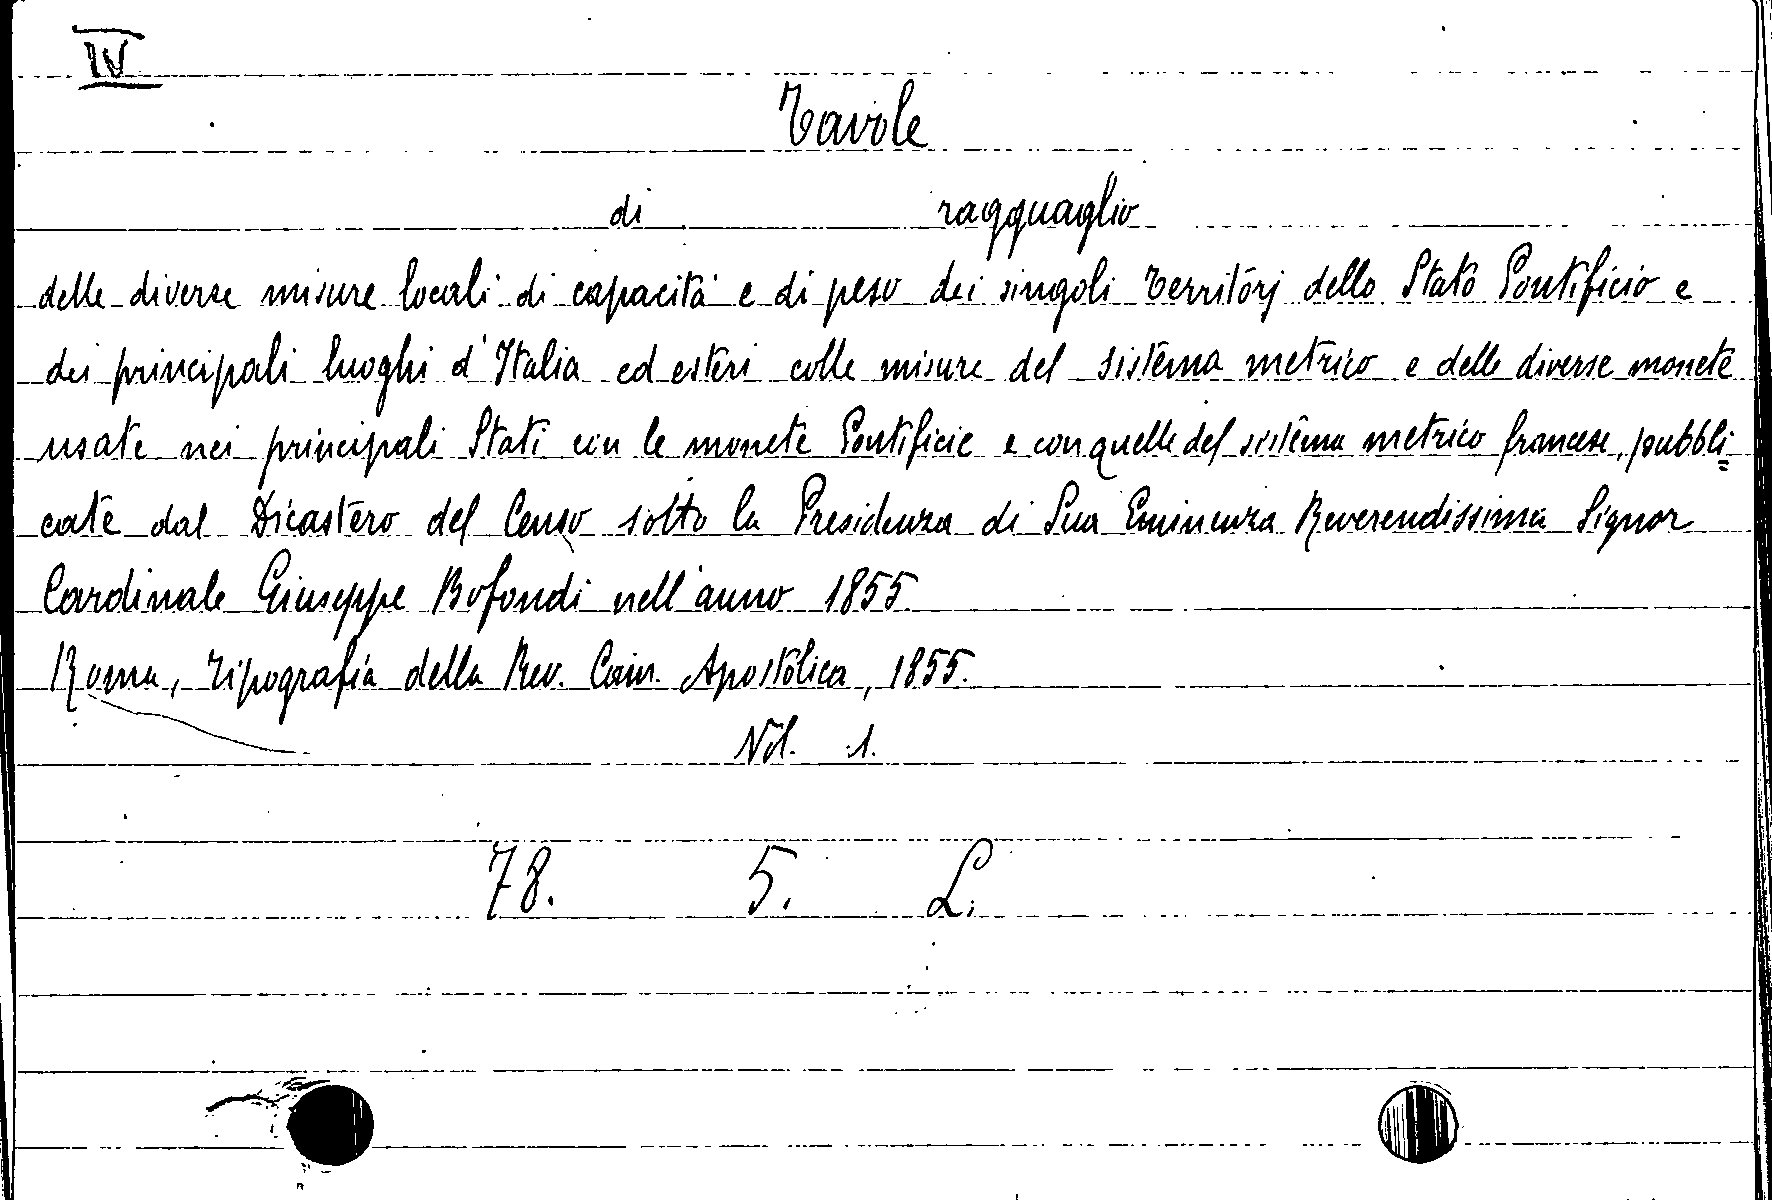 IV
Tavole
di ragguaglio
delle diverse misure locali di capacità e di peso dei singoli territorj dello Stato Pontificio e
dei principali luoghi d'Italia ed esteri colle misure del sistema metrico e delle diverse monete
usate nei principali Stati con le monete Pontificie e con quelle del sistema metrico francese, pubbli=
cate dal Dicastero del Censo sotto la Presidenza di Sua Eminenza Reverendissima Signor
Cardinale Giuseppe Bofondi nell'anno 1855
Roma, tipografia della Rev. Cam. Apostolica, 1855.
Vol. 1.
78. 5. L.